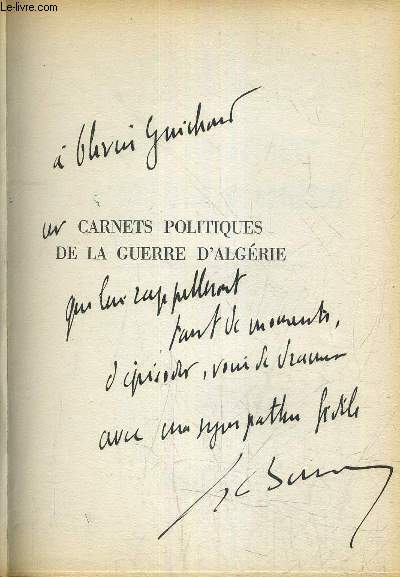 a-Livre.com
à Olivier Guichard
ces CARNETS POLITIQUES
DE LA GUERRE D'ALGÉRIE
qui lui rappelleront
tant de moments,
d'épisodes, voire de drames
avec ma sympathie fidèle